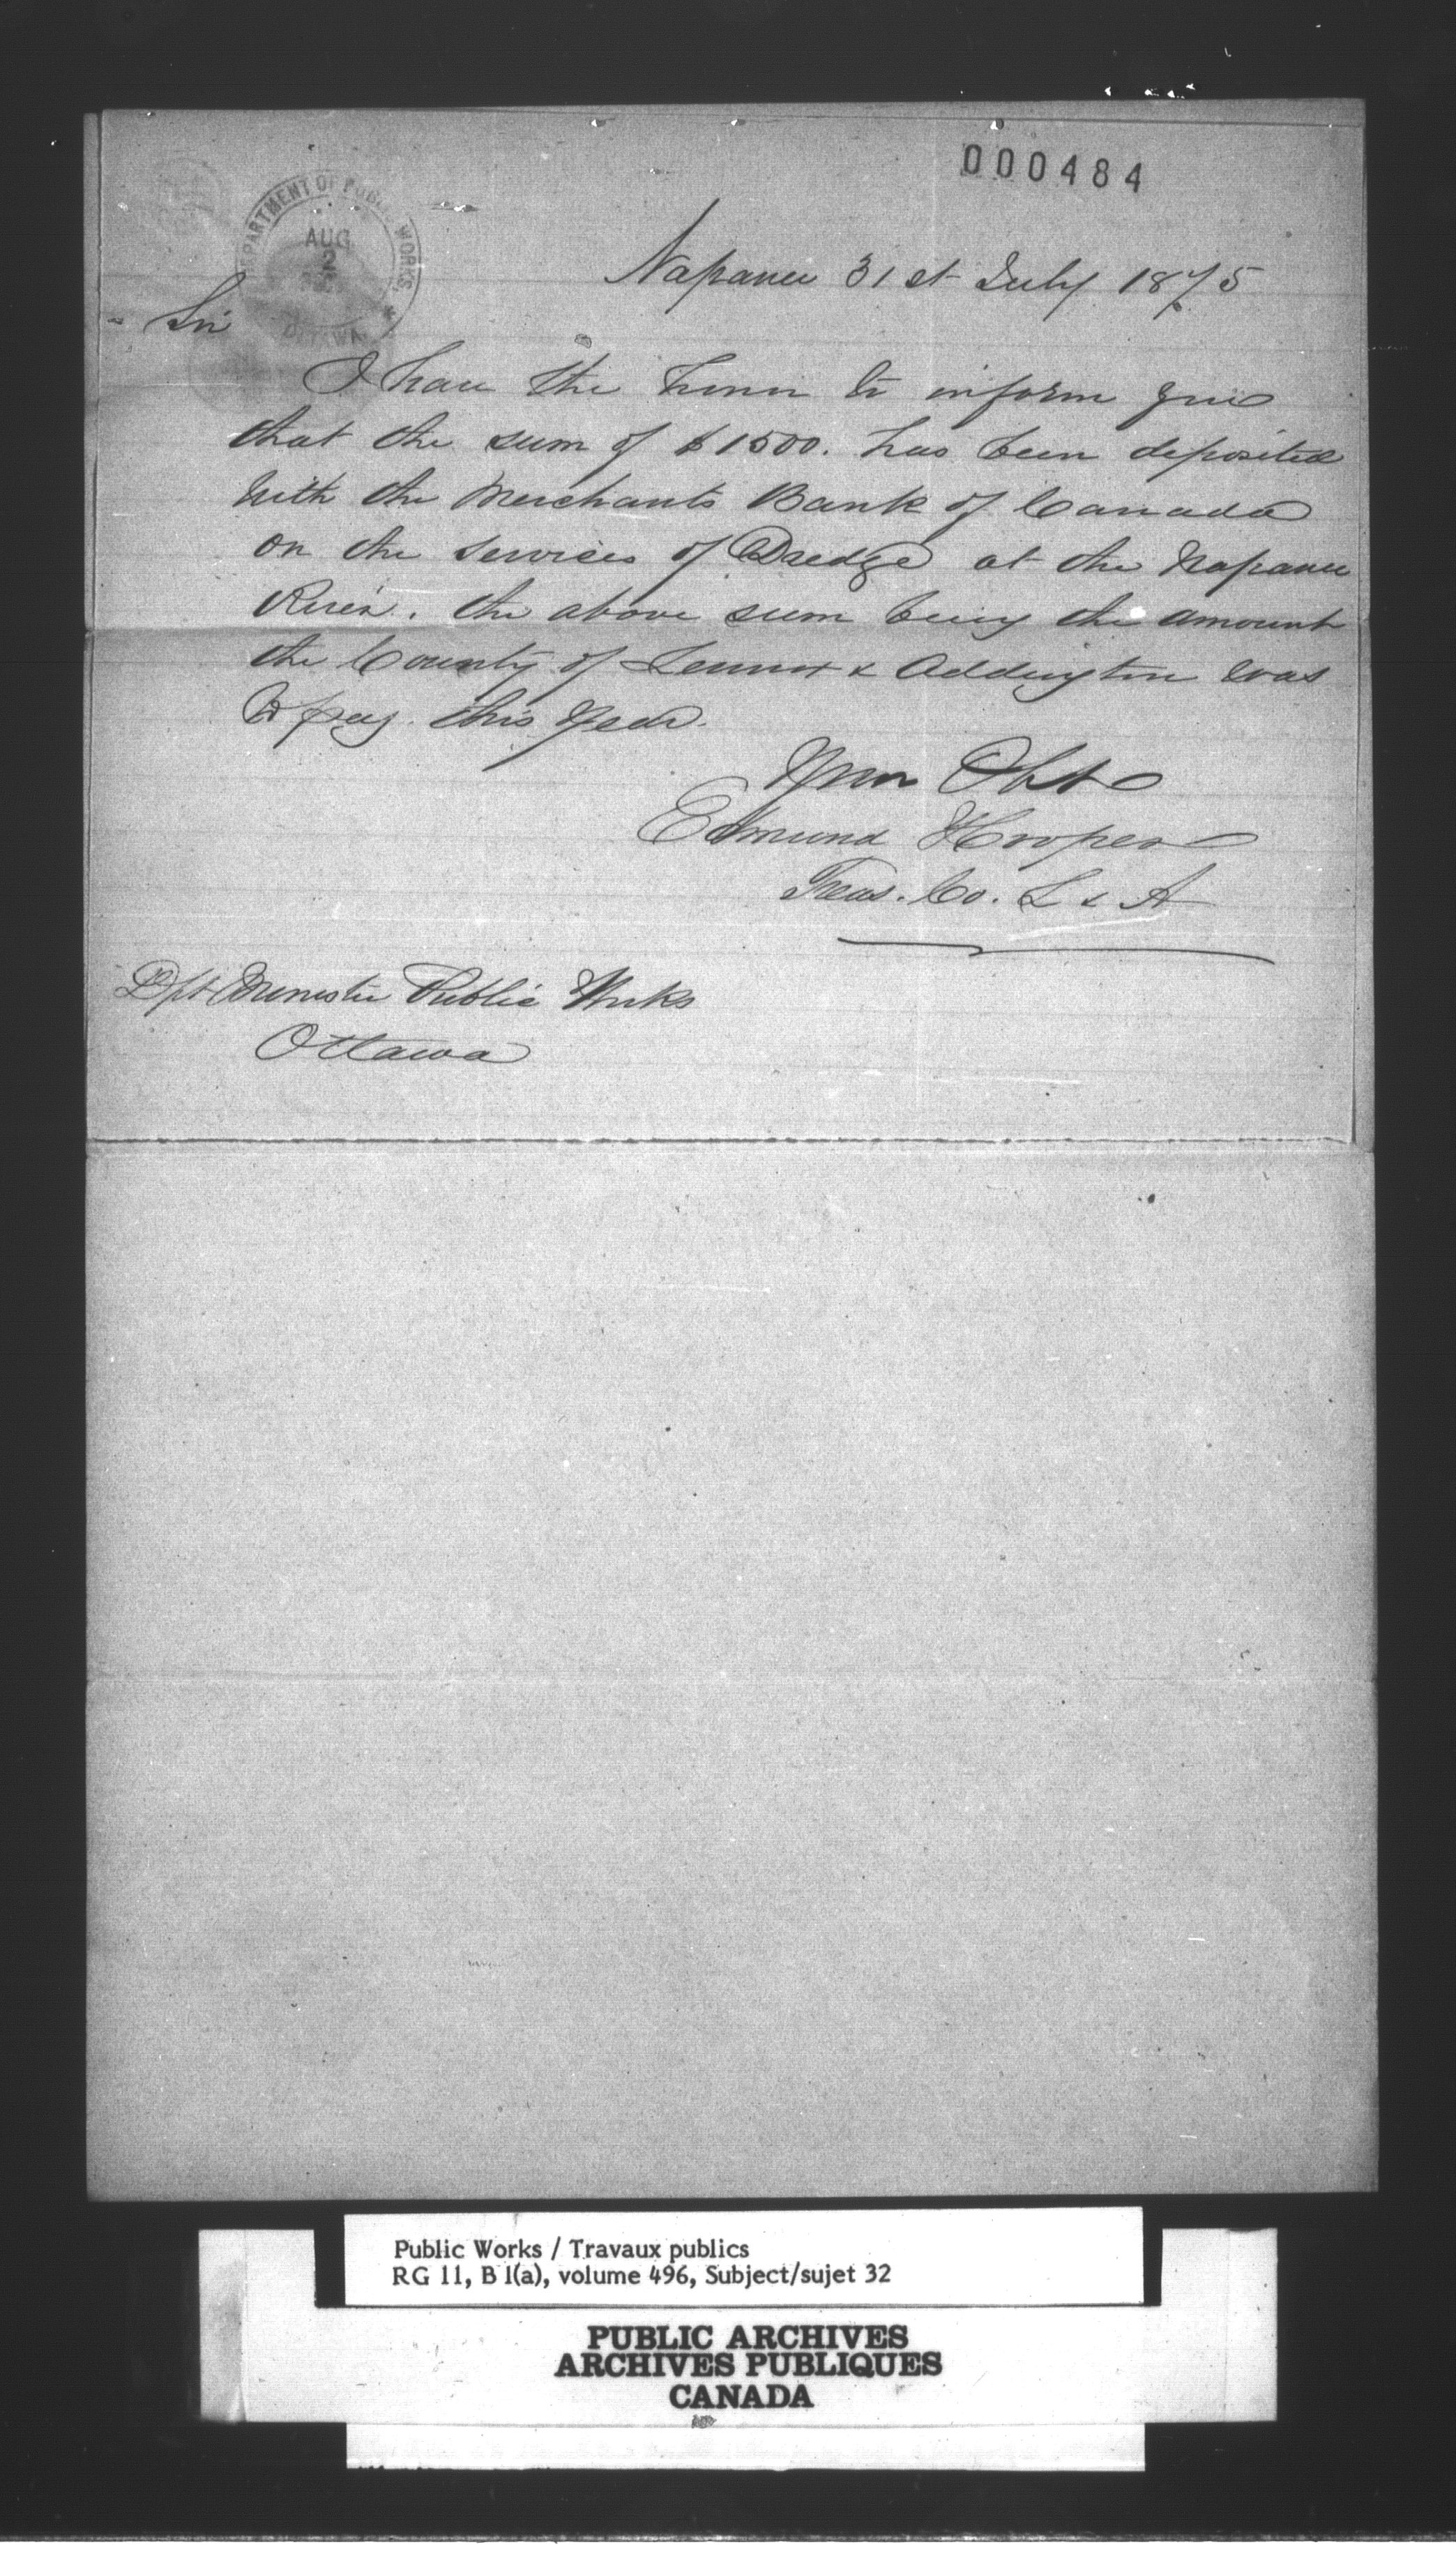 000484
DEPARTMENT OF PUBLIC WORKS.
AUG
2
OTTAWA
Napanee 31st July 1875
Sir
I have the honor to inform you
that the sum of $1500. has been deposited
with the Merchants Bank of Canada
on the services of Dredge at the Napanee
River. the above sum being the amount
the County of Lennox & Addington was
to pay this year.
Your Obt
Edmund Hooper
Treas. Co. L & A
Dpt Minister Public Works
Ottawa
Public Works / Travaux publics
RG 11, B 1(a), volume 496, Subject/sujet 32
PUBLIC ARCHIVES
ARCHIVES PUBLIQUES
CANADA